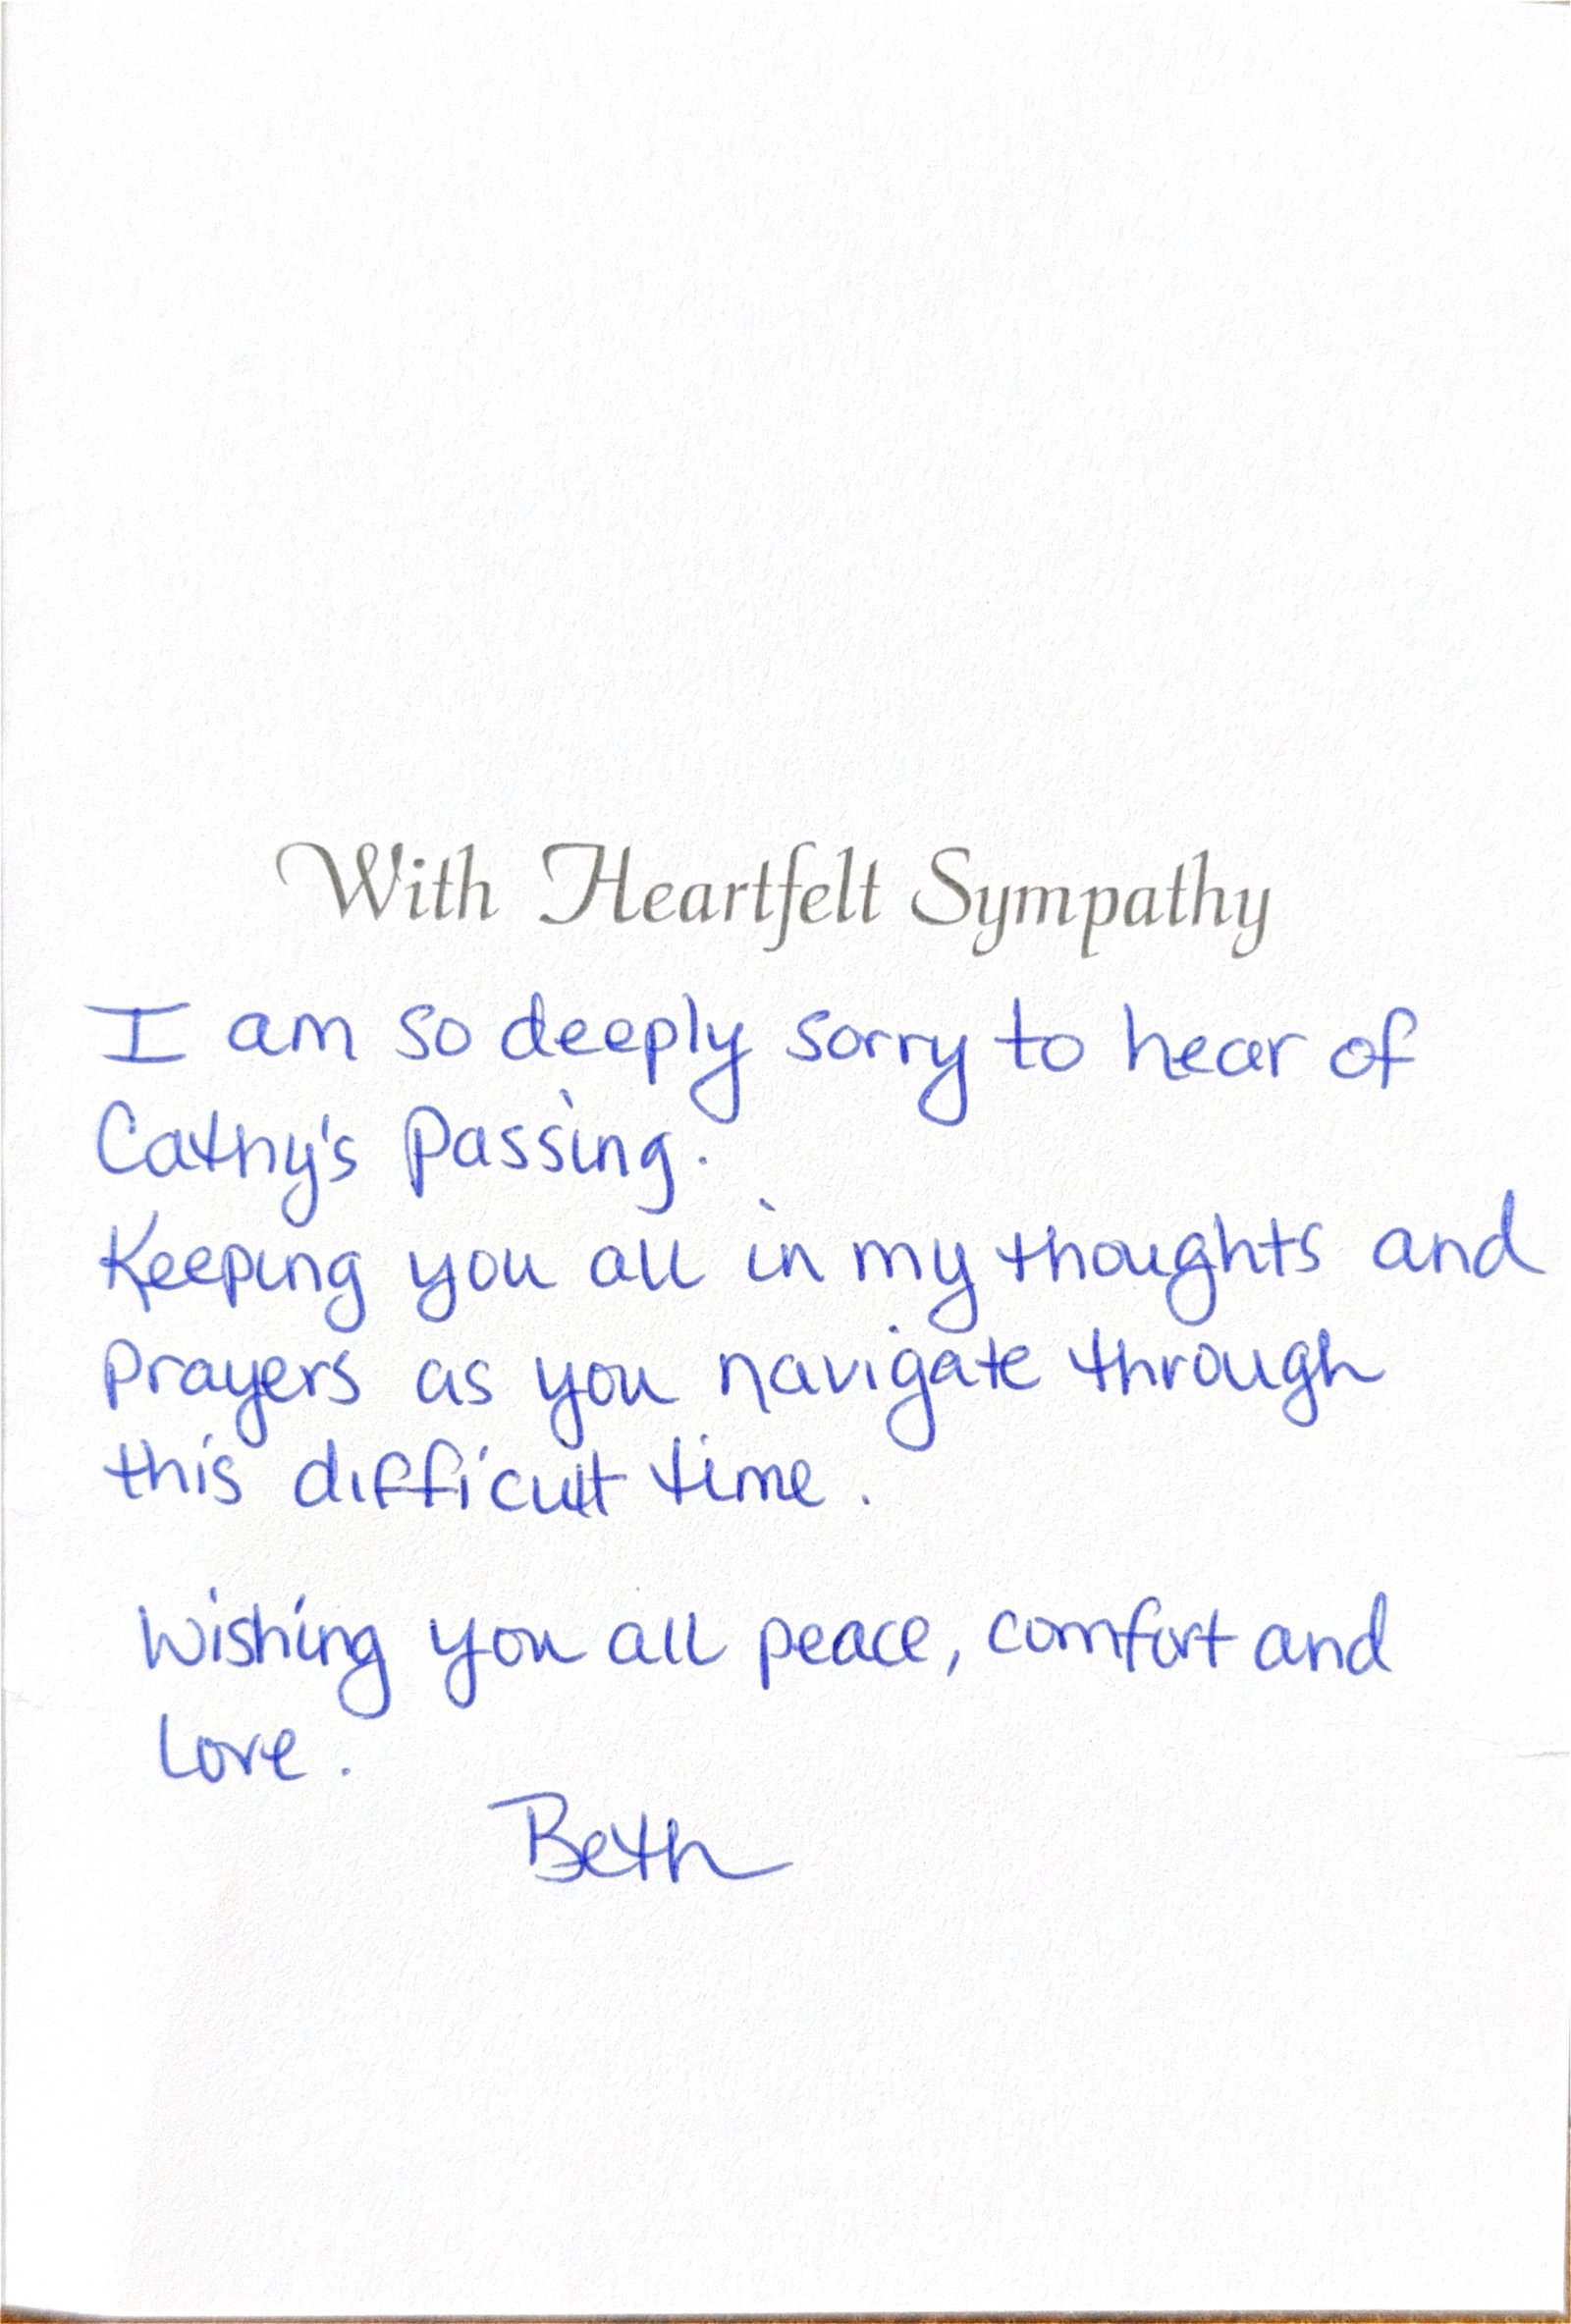 With Heartfelt Sympathy
I am so deeply sorry to hear of
Cathy's passing.
Keeping you all in my thoughts and
prayers as you navigate through
this difficult time.
Wishing you all peace, comfort and
love.
Beth